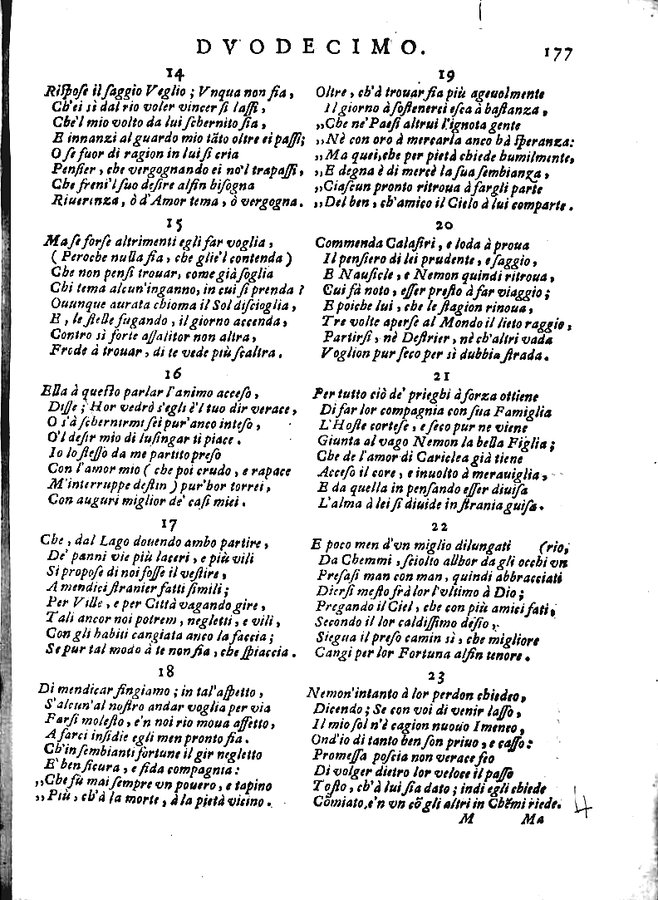 DVODECIMO. 177
14
Riſpoſe il ſaggio Veglio; Vnqua non ſia,
Ch'ei sì dal rio voler vincer ſi laſſi,
Che'l mio volto da lui ſchernito ſia,
E innanzi al guardo mio tãto oltre ei paſſi;
O ſe fuor di ragion in lui ſi cria
Penſier, che vergognando ei no'l trapaſſi,
Che freni'l ſuo deſire alfin biſogna
Riuerenza, ò d'Amor tema, ò vergogna.
15
Ma ſe forſe altrimenti egli far voglia,
(Peroche nulla ſia, che glie'l contenda)
Che non penſi trouar, come già ſoglia
Chi tema alcun'inganno, in cui ſi prenda?
Ouunque aurata chioma il Sol diſcioglia,
E, le ſtelle fugando, il giorno accenda,
Contro sì forte aſſalitor non altra,
Frode à trouar, di te vede più ſcaltra.
16
Ella à queſto parlar l'animo acceſo,
Diſſe; Hor vedrò s'egli è'l tuo dir verace,
O s'à ſchernirmi ſei pur'anco inteſo,
O'l deſir mio di luſingar ti piace.
Io lo ſteſſo da me partito preſo
Con l'amor mio (che poi crudo, e rapace
M'interruppe deſtin) pur'hor torrei,
Con auguri miglior de' caſi miei.
17
Che, dal Lago douendo ambo partire,
De' panni vie più laceri, e più vili
Si propoſe di noi foſſe il veſtire,
A mendici ſtranier fatti ſimili;
Per Ville, e per Città vagando gire,
Tali ancor noi potrem, negletti, e vili,
Con gli habiti cangiata anco la faccia;
Se pur tal modo à te non ſia, che ſpiaccia.
18
Di mendicar fingiamo; in tal'aſpetto,
S'alcun'al noſtro andar voglia per via
Farſi moleſto, e'n noi rio moua affetto,
A farci inſidie egli men pronto ſia.
Ch'in ſembianti fortune il gir negletto
E' ben ſicura, e fida compagnia:
„Che fù mai ſempre vn pouero, e tapino
„Più, ch'à la morte, à la pietà vicino.
19
Oltre, ch'à trouar ſia più ageuolmente
Il giorno à ſoſtenerci eſca à baſtanza,
„Che ne' Paeſi altrui l'ignota gente
„Nè con oro à mercarla anco hà ſperanza:
„Ma quei, che per pietà chiede humilmente,
„E degna è di mercè la ſua ſembianza,
„Ciaſcun pronto ritroua à fargli parte
„Del ben, ch'amico il Cielo à lui comparte.
20
Commenda Calaſiri, e loda à proua
Il penſiero di lei prudente, e ſaggio,
E Nauſicle, e Nemon quindi ritroua,
Cui fà noto, eſſer preſto à far viaggio;
E poiche lui, che le ſtagion rinoua,
Tre volte aperſe al Mondo il lieto raggio,
Partirſi, nè Deſtrier, nè ch'altri vada
Voglion pur ſeco per sì dubbia ſtrada.
21
Per tutto ciò de' prieghi à forza ottiene
Di far lor compagnia con ſua Famiglia
L'Hoſte corteſe, e ſeco pur ne viene
Giunta al vago Nemon la bella Figlia;
Che de l'amor di Cariclea già tiene
Acceſo il core, e inuolto à merauiglia,
E da quella in penſando eſſer diuiſa
L'alma à lei ſi diuide in ſtrania guiſa.
22
E poco men d'vn miglio dilungati (rio,
Da Chemmi, ſciolto allhor da gli occhi vn
Preſaſi man con man, quindi abbracciati
Dierſi meſto frà lor l'vltimo à Dio;
Pregando il Ciel, che con più amici fati,
Secondo il lor caldiſſimo deſio,
Siegua il preſo camin sì, che migliore
Cangi per lor Fortuna alfin tenore.
23
Nemon'intanto à lor perdon chiedeo,
Dicendo; Se con voi di venir laſſo,
Il mio ſol n'è cagion nuouo Imeneo,
Ond'io di tanto ben ſon priuo, e caſſo:
Promeſſa poſcia non verace feo
Di volger dietro lor veloce il paſſo
Toſto, ch'à lui ſia dato; indi egli chiede
Cõmiato, e'n vn cõ gli altri in Chẽmi riede.
M Ma